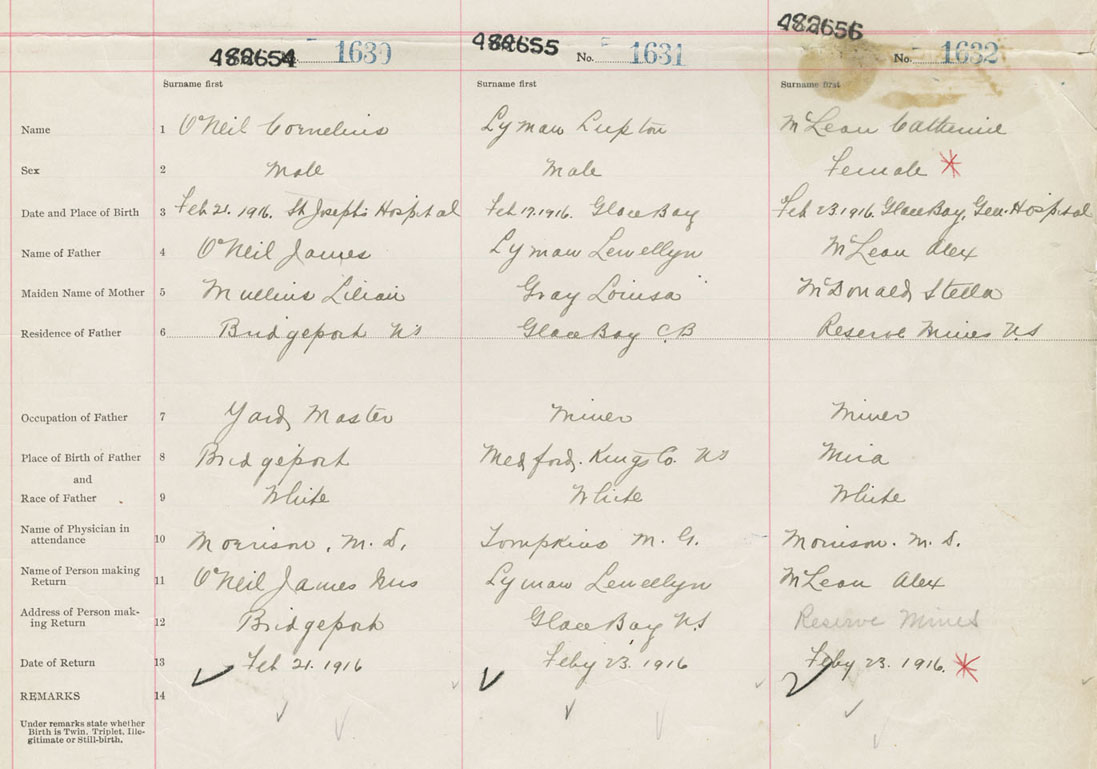 482654 1630 482655 No. 1631 482656 No. 1632
Surname first Surname first Surname first
Name 1 O'Neil Cornelius Lyman Lupton McLean Catherine
Sex 2 Male Male Female *
Date and Place of Birth 3 Feb 21. 1916. St Joseph's Hospital Feb 17. 1916. Glace Bay Feb 23. 1916. Glace Bay, Gen. Hospital
Name of Father 4 O'Neil James Lyman Lewellyn McLean Alex
Maiden Name of Mother 5 Mullins Lilian Gray Louisa McDonald, Stella
Residence of Father 6 Bridgeport NS Glace Bay C.B Reserve Mines N.S
Occupation of Father 7 Yard Master Miner Miner
Place of Birth of Father 8 Bridgeport Medford. Kings Co. NS Mira
and
Race of Father 9 White White White
Name of Physician in
attendance 10 Morrison, M. D. Tompkins M. G. Morrison. M. D.
Name of Person making
Return 11 O'Neil James Mrs Lyman Lewellyn McLean Alex
Address of Person mak-
ing Return 12 Bridgeport Glace Bay N.S Reserve Mines
Date of Return 13 Feb 21. 1916 Feby 23. 1916 Feby 23. 1916. *
REMARKS 14
Under remarks state whether
Birth is Twin, Triplet, Ille-
gitimate or Still-birth.